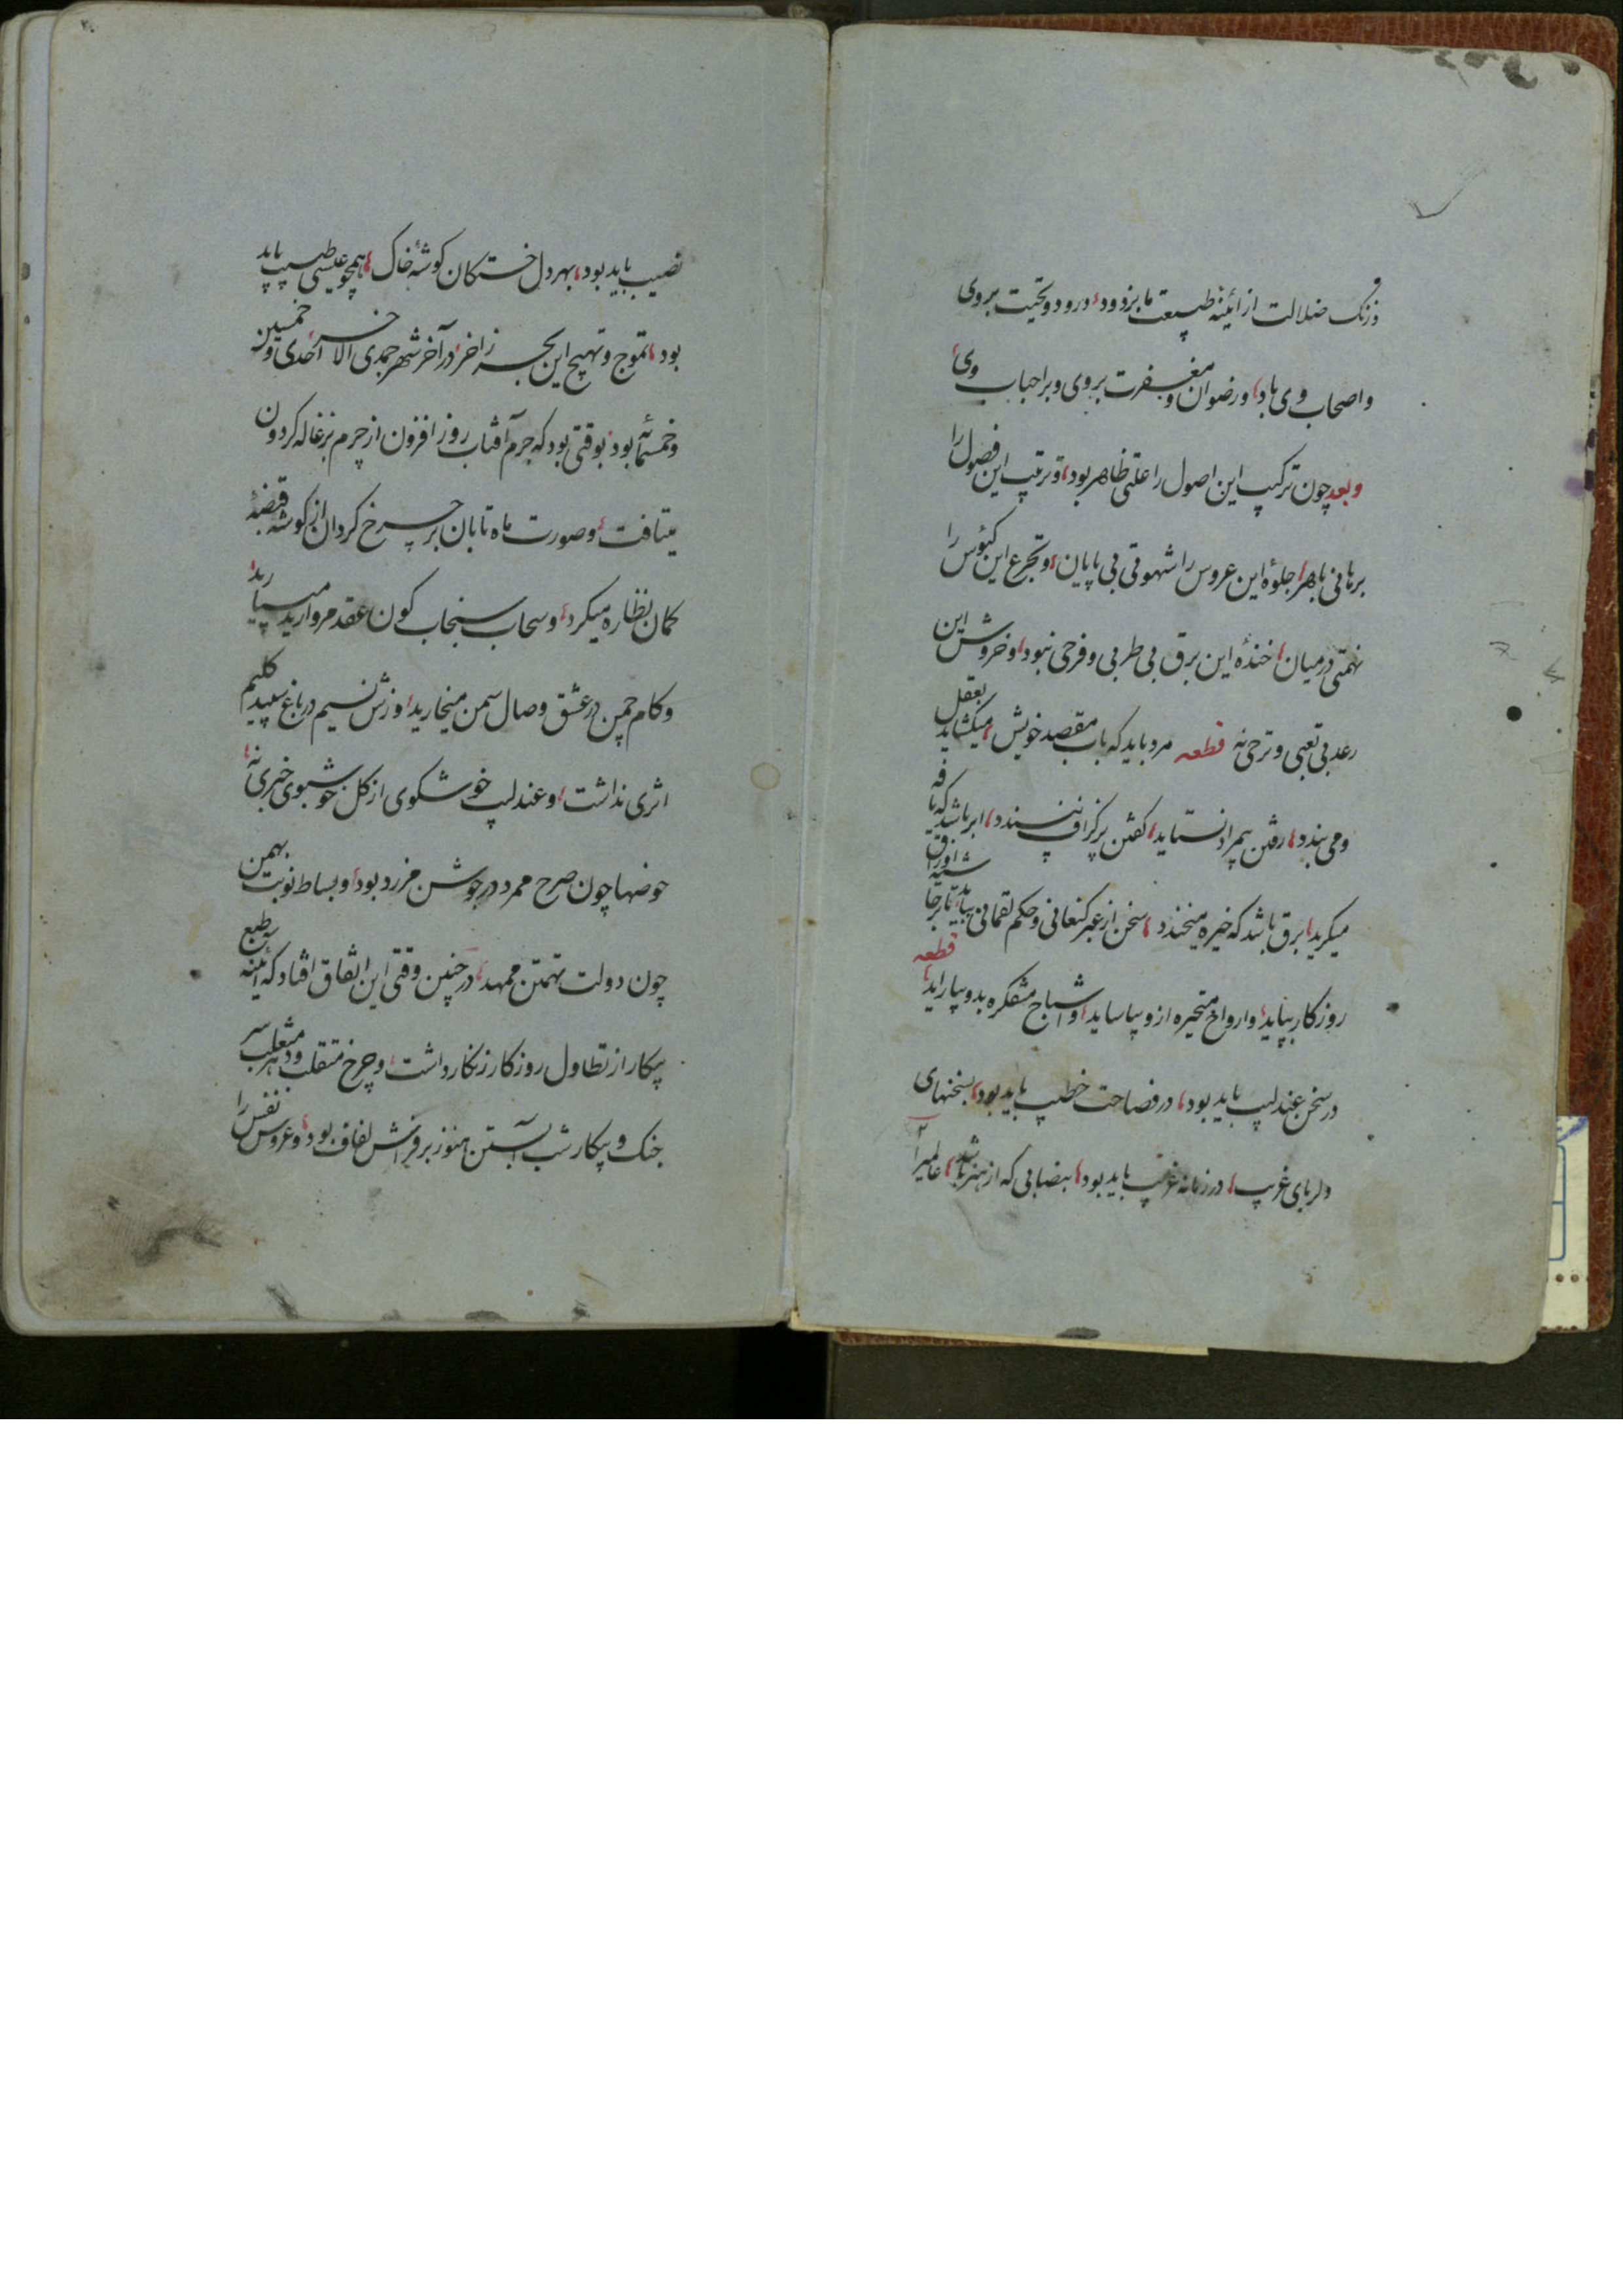 وزنک ضلالت از ائینه طبیعت ما بزدود، درود و تحیت بر وی
و اصحاب وی باد، و رضوان و مغفرت بر وی و بر احباب وی،
و بعد چون ترکیب این اصول را علتی ظاهر بود، و ترتیب این فصول را
برهانی باهر، جلوه این عروس را شهوتی بی پایان، و تجرع این کئوس را
نهمتی در میان، خندهٔ این برق بی طربی و فرحی نبود، و خروش این
رعد بی تعبی و ترحی نه قطعه مرد باید که باب مقصد خویش، بعقل میکشاید
و می بندد، رفتن بیمراد نستاید، کفتن پر کزاف نپسندد، ابر باشد که یافه
میکرید، برق باشد که خیره میخندد، سخن از عبر کنعانی و حکم لقمانی بباید، تا بر جا
روزکار بپاید، و ارواح متحیره ازو بیاساید، و اشباح متفکره بدو بیاراید، قطعه
در سخن عندلیب باید بود، در فصاحت خطیب باید بود، بسخنهای
دلربای غریب، در زمانه غریب باید بود، بنصابی که از هنر باشد، عالمیرا
نصیب باید بود، بهر دل خستکان کوشهٔ خاک، همچو عیسی طبیب باید
بود، تموج و تهیج این بحر زاخر، در آخر شهر جمدی الاخر، احدی و خمسین
و خمسمائه بود، بوقتی بود که جرم آفتاب روز افزون از چرم بزغاله کردون
میتافت، و صورت ماه تابان بر چرخ کردان از کوشه قبضهٔ
کمان نظاره میکرد، و سحاب سنجاب کون عقد مروارید میپاشید،
و کام چمن در عشق وصال سمن میخارید، وزش نسیم در باغ سپید کلیم
اثری نداشت، و عندلیب خوشکوی از کل خوشبوی خبری نه،
حوضها چون صرح ممرد در جوشن مزرد بود، و بساط نوبت بهمن
چون دولت تهمتن ممهد، در چنین وقتی این اتفاق افتاد که ائینه طبع
پیکار از تطاول روزکار زنکار داشت، و چرخ متقلب و دهر متغلب سر
جنک و پیکار شب آبستن هنوز بر فراش لفاف بود، و عروس نفس را